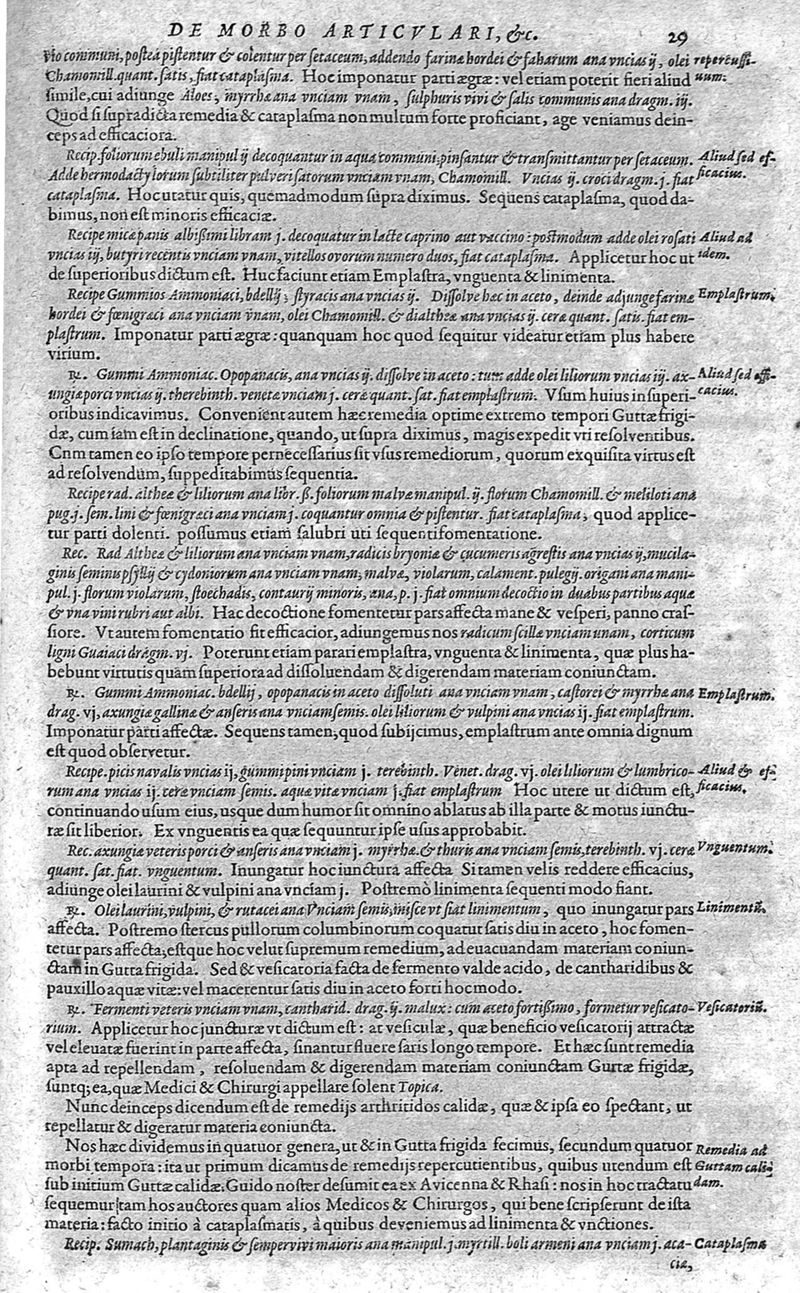 DE MORBO ARTICVLARI, &c. 29
no communi, posteà pistentur & colentur per setaceum, addendo farinæ hordei & fabarum ana vncias ij, olei repercussi-
Chamomill. quant. satis, fiat cataplasma. Hoc imponatur parti ægræ: vel etiam poterit fieri aliud uum:
simile, cui adiunge Aloes, myrrhæ ana vnciam vnam, sulphuris vivi & salis communis ana dragm. iij.
Quod si supradicta remedia & cataplasma non multum forte proficiant, age veniamus dein-
ceps ad efficaciora.
Recip. foliorum ebuli manipul ij decoquantur in aqua communi, pinsantur & transmittantur per setaceum. Aliud sed ef-
Adde hermodactylorum subtiliter pulverisatorum vnciam vnam, Chamomill. Vncias ij. croci dragm. j. fiat ficacius.
cataplasma. Hoc utatur quis, quemadmodum supra diximus. Sequens cataplasma, quod da-
bimus, non est minoris efficaciæ.
Recipe micæ panis albißimi libram j. decoquatur in lacte caprino aut vaccino: postmodum adde olei rosati Aliud ad
vncias iij, butyri recentis vnciam vnam, vitellos ovorum numero duos, fiat cataplasma. Applicetur hoc ut idem.
de superioribus dictum est. Huc faciunt etiam Emplastra, vnguenta & linimenta.
Recipe Gummios Ammoniaci, bdellij, styracis ana vncias ij. Dissolve hæc in aceto, deinde adjunge farinæ Emplastrum.
hordei & fœnigræci ana vnciam vnam, olei Chamomill. & dialtheæ ana vncias ij. ceræ quant. satis. fiat em-
plastrum. Imponatur parti ægræ: quanquam hoc quod sequitur videatur etiam plus habere
virium.
℞. Gummi Ammoniac. Opopanacis, ana vncias ij. dissolve in aceto: tum adde olei liliorum vncias iij. ax- Aliud sed effi-
ungiæ porci vncias ij. therebinth. venetæ vnciam j. ceræ quant. sat. fiat emplastrum. Vsum huius in superi- cacius.
oribus indicavimus. Convenient autem hæc remedia optime extremo tempori Guttæ frigi-
dæ, cum iam est in declinatione, quando, ut supra diximus, magis expedit vti resolventibus.
Cnm tamen eo ipso tempore pernecessarius sit vsus remediorum, quorum exquisita virtus est
ad resolvendum, suppeditabimus sequentia.
Recipe rad. altheæ & liliorum ana libr. ß. foliorum malvæ manipul. ij. florum Chamomill. & meliloti ana
pug. j. sem. lini & fœnigræci ana vnciam j. coquantur omnia & pistentur. fiat cataplasma, quod applice-
tur parti dolenti. possumus etiam salubri uti sequenti fomentatione.
Rec. Rad Altheæ & liliorum ana vnciam vnam, radicis bryoniæ & cucumeris agrestis ana vncias ij, mucila-
ginis seminus psyllij & cydoniorum ana vnciam vnam, malvæ, violarum, calament. pulegij. origani ana mani-
pul. j. florum violarum, stoechadis, contaurij minoris, ana, p. j. fiat omnium decoctio in duabus partibus aquæ
& vna vini rubri aut albi. Hac decoctione fomentetur pars affecta mane & vesperi, panno cras-
siore. Vt autem fomentatio fit efficacior, adiungemus nos radicum scillæ vnciam unam, corticum
ligni Guaiaci dragm. vj. Poterunt etiam parari emplastra, vnguenta & linimenta, quæ plus ha-
bebunt virtutis quam superiora ad dissoluendam & digerendam materiam coniunctam.
℞. Gummi Ammoniac. bdellij, opopanacis in aceto dissoluti ana vnciam vnam, castorei & myrrhæ ana Emplastrum.
drag. vj, axungiæ gallinæ & anseris ana vnciam semis. olei liliorum & vulpini ana vncias ij. fiat emplastrum.
Imponatur parti affectæ. Sequens tamen, quod subijcimus, emplastrum ante omnia dignum
est quod observetur.
Recipe. picis navalis vncias ij, gummi pini vnciam j. terebinth. Venet. drag. vj. olei liliorum & lumbrico- Aliud & ef-
rum ana vncias ij. ceræ vnciam semis. aquæ vitæ vnciam j. fiat emplastrum Hoc utere ut dictum est, ficacius.
continuando usum eius, usque dum humor sit omnino ablatus ab illa parte & motus iunctu-
ræ sit liberior. Ex vnguentis ea quæ sequuntur ipse usus approbabit.
Rec. axungiæ veteris porci & anseris ana vnciam j. myrrhæ. & thuris ana vnciam semis, terebinth. vj. ceræ Vnguentum.
quant. sat. fiat. vnguentum. Inungatur hoc iunctura affecta Si tamen velis reddere efficacius,
adiunge olei laurini & vulpini ana vnciam j. Postremò linimenta sequenti modo fiant.
℞. Olei laurini, vulpini, & rutacei ana Vnciam semis, misce vt fiat linimentum, quo inungatur pars Linimentū.
affecta. Postremo stercus pullorum columbinorum coquatur satis diu in aceto, hoc fomen-
tetur pars affecta, estque hoc velut supremum remedium, ad euacuandam materiam coniun-
ctam in Gutta frigida. Sed & vesicatoria facta de fermento valde acido, de cantharidibus &
pauxillo aquæ vitæ: vel macerentur satis diu in aceto forti hoc modo.
℞. Fermenti veteris vnciam vnam, cantharid. drag. ij. malux: cum aceto fortißimo, formetur vesicato- Vesicatoriū.
rium. Applicetur hoc juncturæ vt dictum est: at vesiculæ, quæ beneficio vesicatorij attractæ
vel eleuatæ fuerint in parte affecta, sinantur fluere saris longo tempore. Et hæc sunt remedia
apta ad repellendam, resoluendam & digerendam materiam coniunctam Guttæ frigidæ,
suntq; ea, quæ Medici & Chirurgi appellare solent Topica.
Nunc deinceps dicendum est de remedijs arthritidos calidæ, quæ & ipsa eo spectant, ut
repellatur & digeratur materia coniuncta.
Nos hæc dividemus in quatuor genera, ut & in Gutta frigida fecimus, secundum quatuor Remedia ad
morbi tempora: ita ut primum dicamus de remedijs repercutientibus, quibus utendum est Guttam cali-
sub initium Guttæ calidæ. Guido noster desumit ea ex Avicenna & Rhasi: nos in hoc tractatu dam.
sequemur tam hos auctores quam alios Medicos & Chirurgos, qui bene scripserunt de ista
materia: facto initio à cataplasmatis, à quibus deveniemus ad linimenta & vnctiones.
Recip. Sumach, plantaginis & sempervivi maioris ana manipul. j. myrtill. boli armeni ana vnciam j. aca- Cataplasma
ciæ,